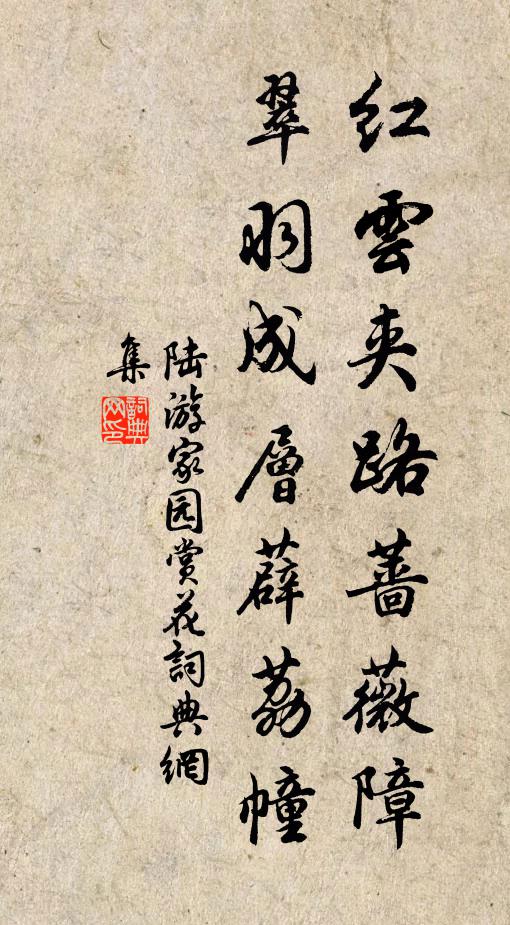 红雲夹路蔷薇障
翠羽成層薜荔幢
陆游家园赏花詞典網
集
詞典网印